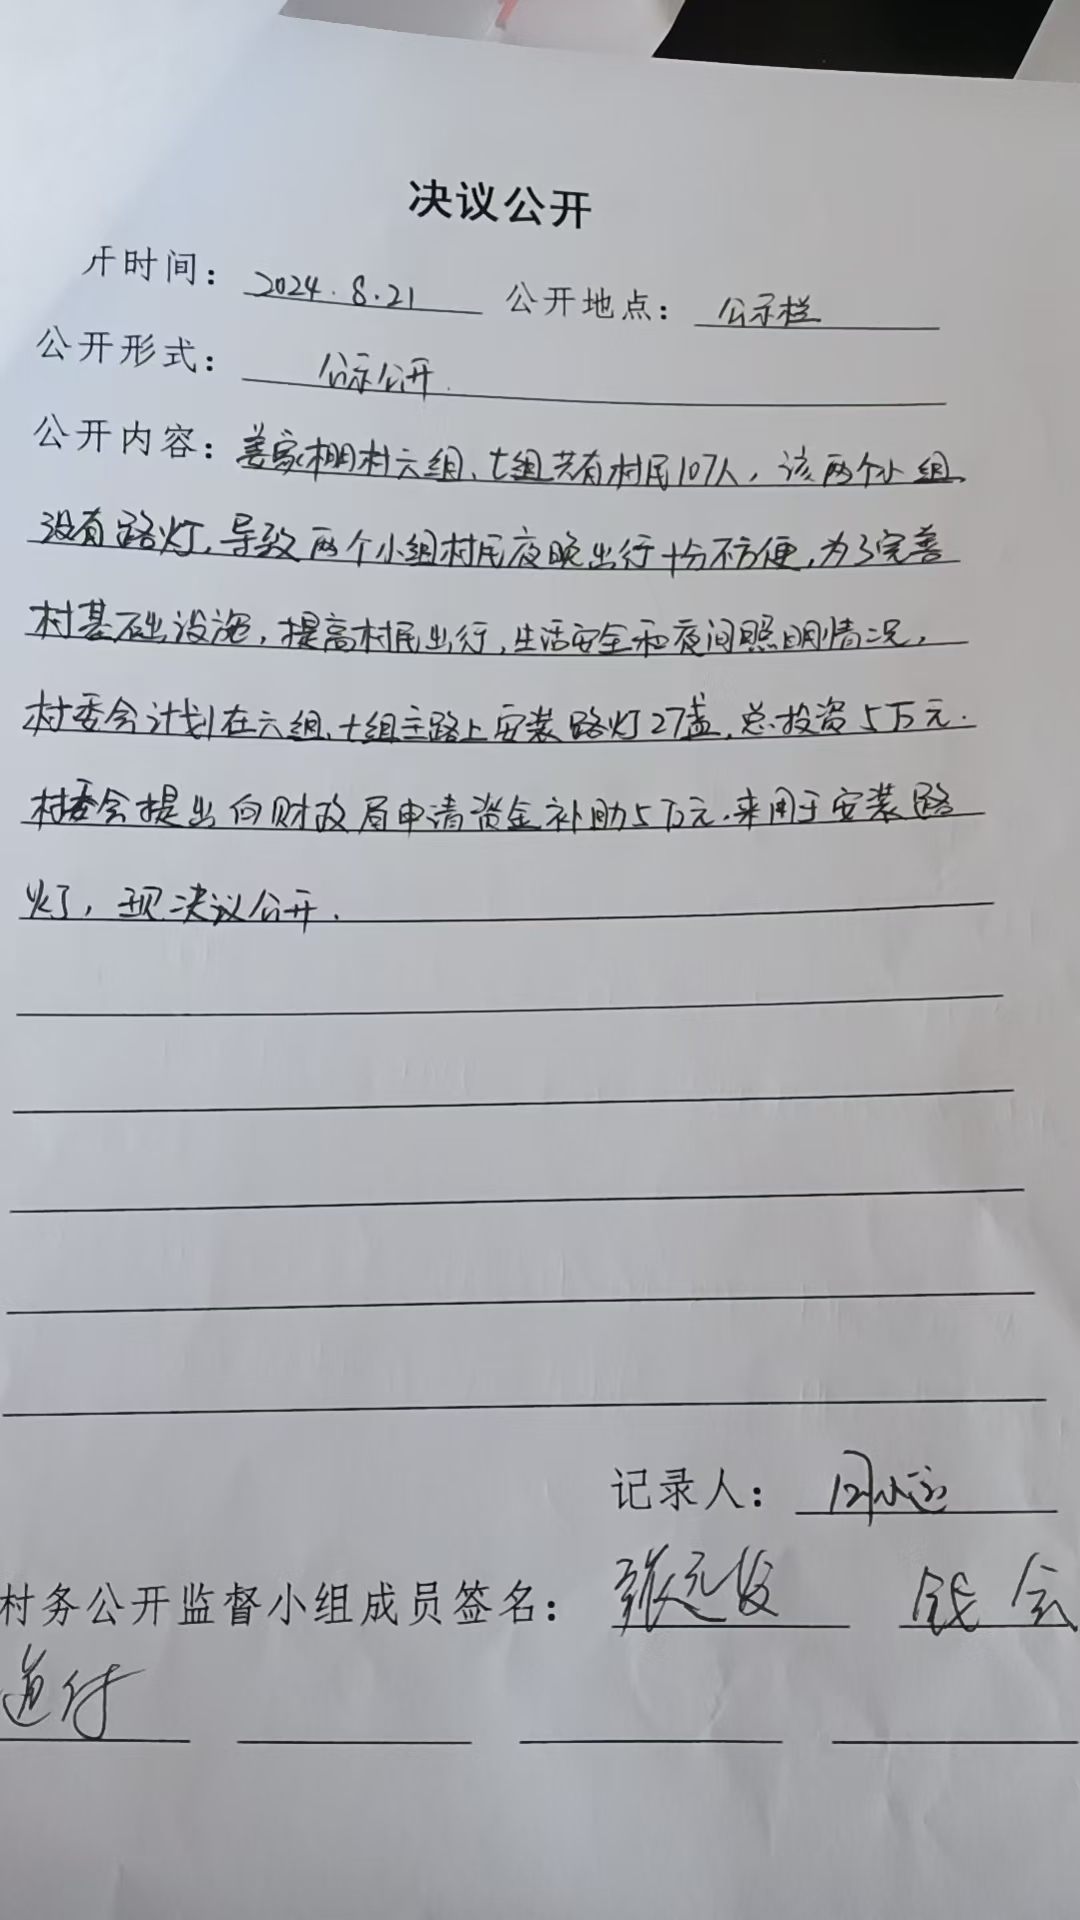 决议公开
开时间：2024.8.21 公开地点：公示栏
公开形式：公示公开.
公开内容：姜家棚村六组、七组共有村民107人，该两个小组
没有路灯，导致两个小组村民夜晚出行十分不方便，为了完善
村基础设施，提高村民出行，生活安全和夜间照明情况，
村委会计划在六组、七组主路上安装路灯27盏，总投资5万元.
村委会提出向财政局申请资金补助5万元.来用于安装路
灯，现决议公开.
记录人：周小
村务公开监督小组成员签名：张元 钱会